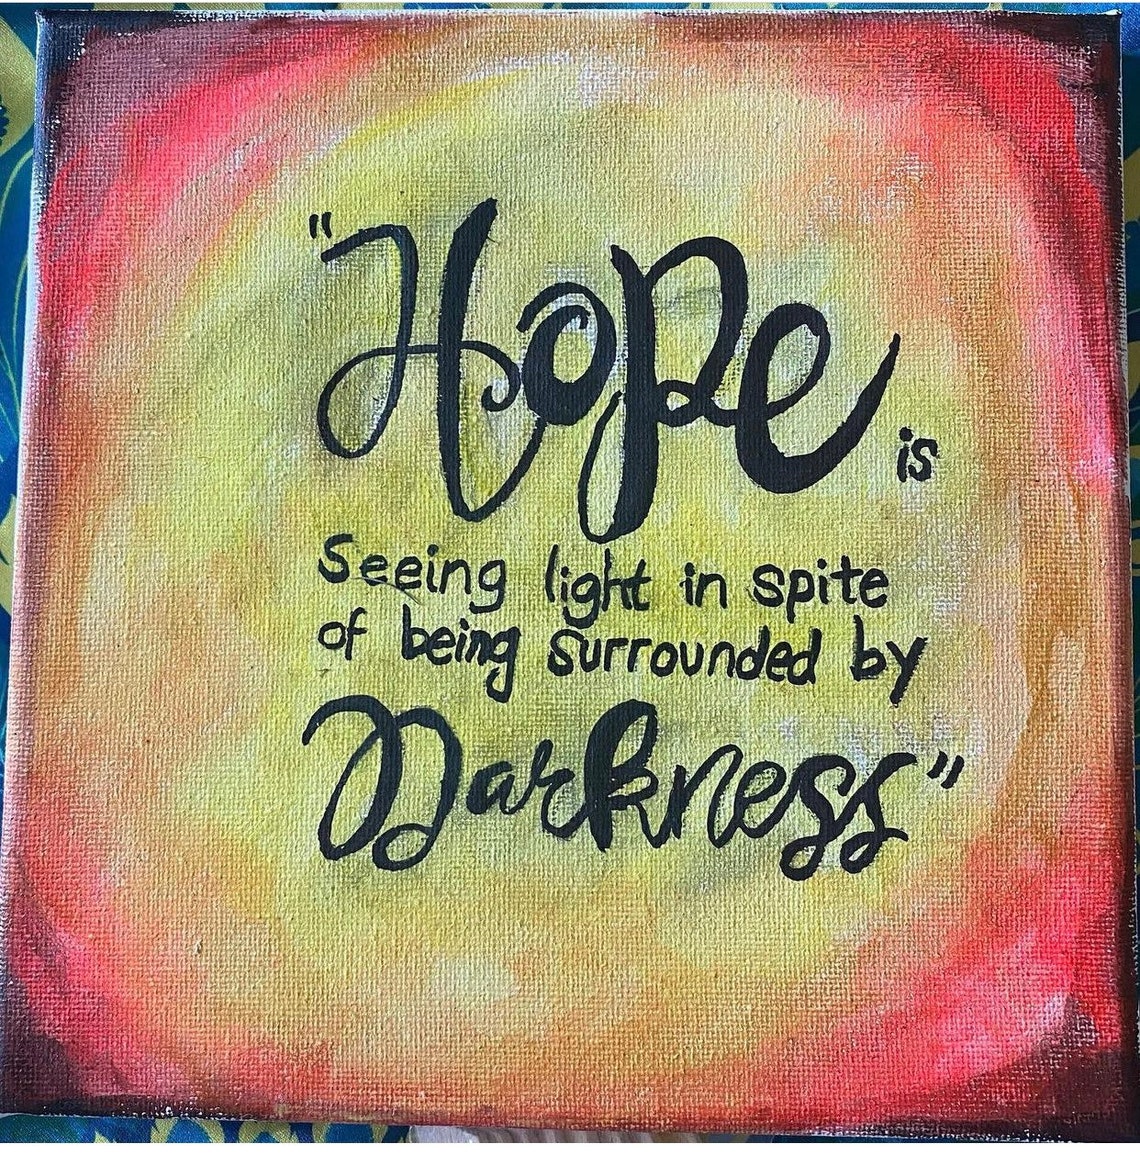 "Hope is
Seeing light in spite
of being surrounded by
Darkness"